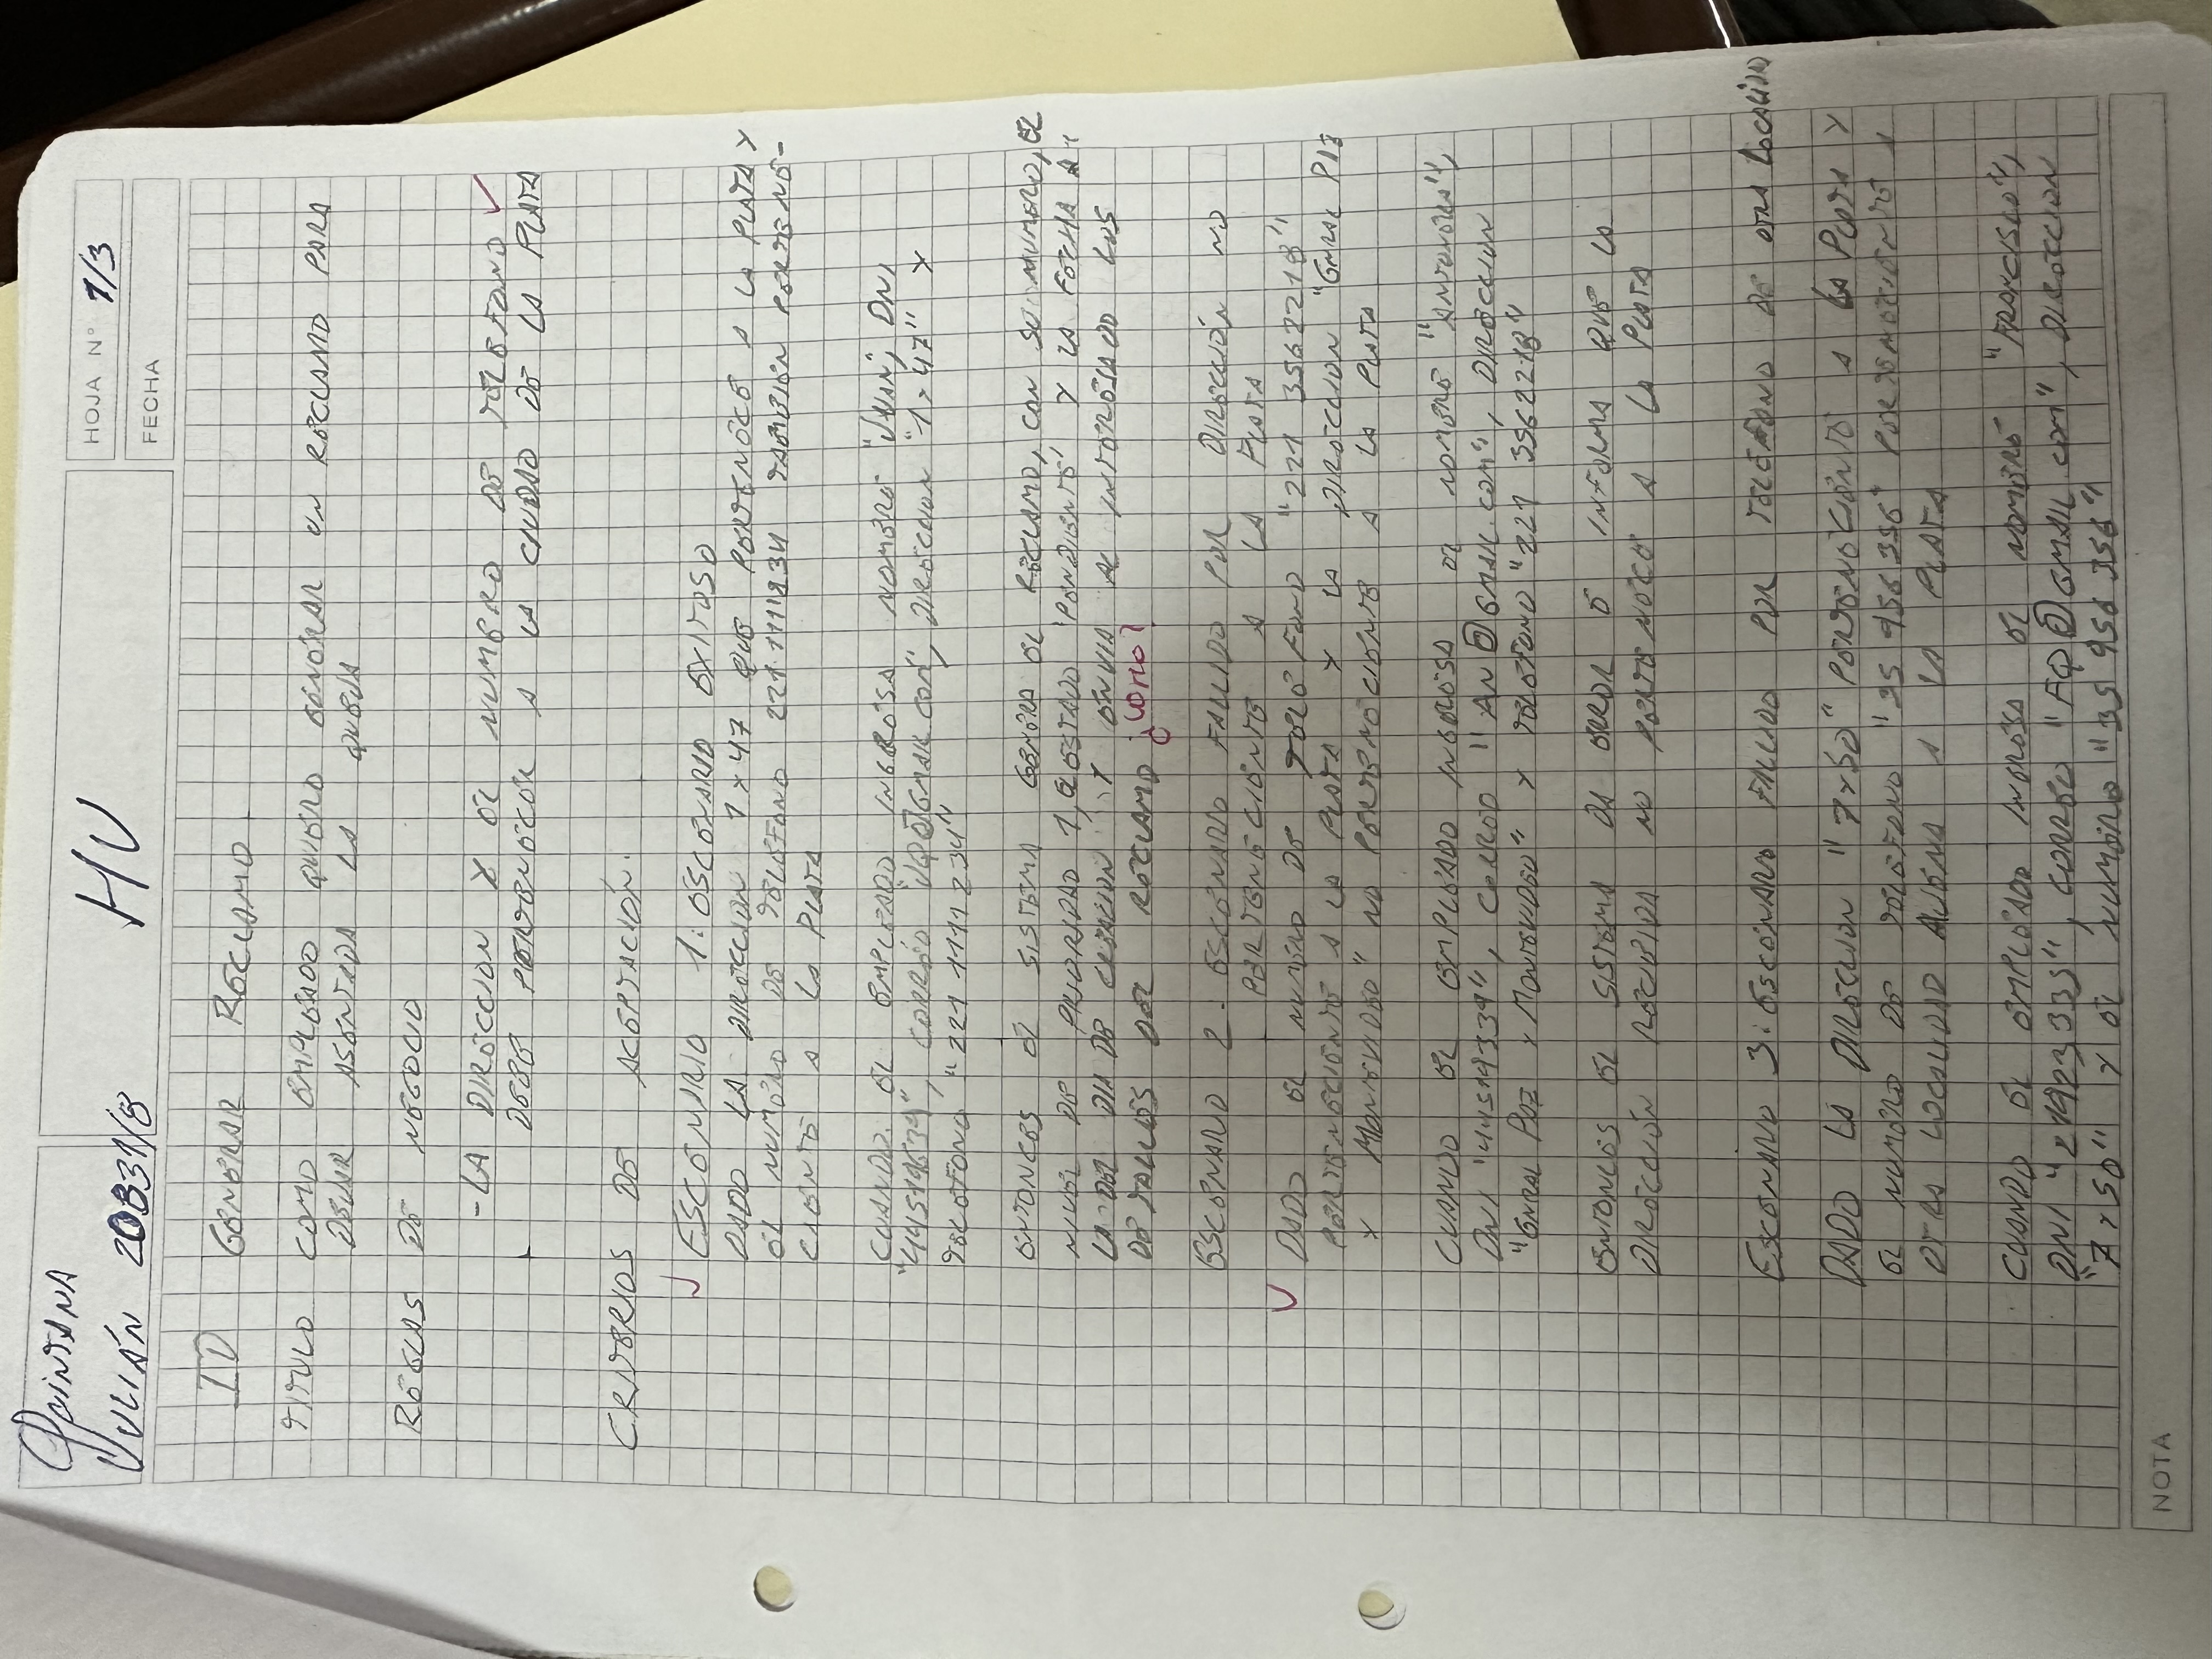 QUINTANA
JULIÁN 20831/8
HU
HOJA N° 1/3
FECHA
ID GENERAR RECLAMO
TITULO COMO EMPLEADO QUIERO GENERAR UN RECLAMO PARA
DEJAR ASENTADA LA QUEJA
REGLAS DE NEGOCIO
-LA DIRECCION Y EL NUMERO DE TELEFONO ✓
DEBE PERTENECER A LA CIUDAD DE LA PLATA
CRITERIOS DE ACEPTACIÓN.
✓ ESCENARIO 1: ESCENARIO EXITOSO
DADO LA DIRECCION 1 Y 47 QUE PERTENECE A LA PLATA Y
EL NUMERO DE TELEFONO 221 1111234 TAMBIEN PERTENE-
CIENTE A LA PLATA
CUANDO EL EMPLEADO INGRESA NOMBRE "JUAN", DNI
"44519639", CORREO "JQ@GMAIL.COM", DIRECCION "1 Y 47" Y
TELEFONO "221 1111234"
ENTONCES EL SISTEMA GENERA EL RECLAMO, CON SU NUMERO, EL
NIVEL DE PRIORIDAD 1, EL ESTADO 'PENDIENTE' Y LA FECHA A
LA DEL DIA DE CREACION Y ENVIA AL INTERESADO LOS
DETALLES DEL RECLAMO ¿COMO?
ESCENARIO 2. ESCENARIO FALLIDO POR DIRECCIÓN NO
PERTENECIENTE A LA PLATA
✓ DADO EL NUMERO DE TELEFONO "221 3562218"
PERTENECIENTE A LA PLATA Y LA DIRECCION "GNRAL PAZ
Y MONTEVIDEO" NO PERTENECIENTE A LA PLATA
CUANDO EL EMPLEADO INGRESA EL NOMBRE "ANTONELA",
DNI "44519339", CORREO "AN@GMAIL.COM", DIRECCION
"GNRAL PAZ Y MONTEVIDEO" Y TELEFONO "221 3562218"
ENTONCES EL SISTEMA DA ERROR E INFORMA QUE LA
DIRECCIÓN RECIBIDA NO PERTENECE A LA PLATA
ESCENARIO 3: ESCENARIO FALLIDO POR TELEFONO DE OTRA LOCALIDAD
DADO LA DIRECCION "7 Y 50" PERTENECIENTE A LA PLATA Y
EL NUMERO DE TELEFONO "35 956 356" PERTENECIENTE A
OTRA LOCALIDAD AJENA A LA PLATA
CUANDO EL EMPLEADO INGRESA EL NOMBRE "FRANCISCO",
DNI "21923335", CORREO "FQ@GMAIL.COM", DIRECCION
"7 Y 50" Y EL NUMERO "35 956 356"
NOTA